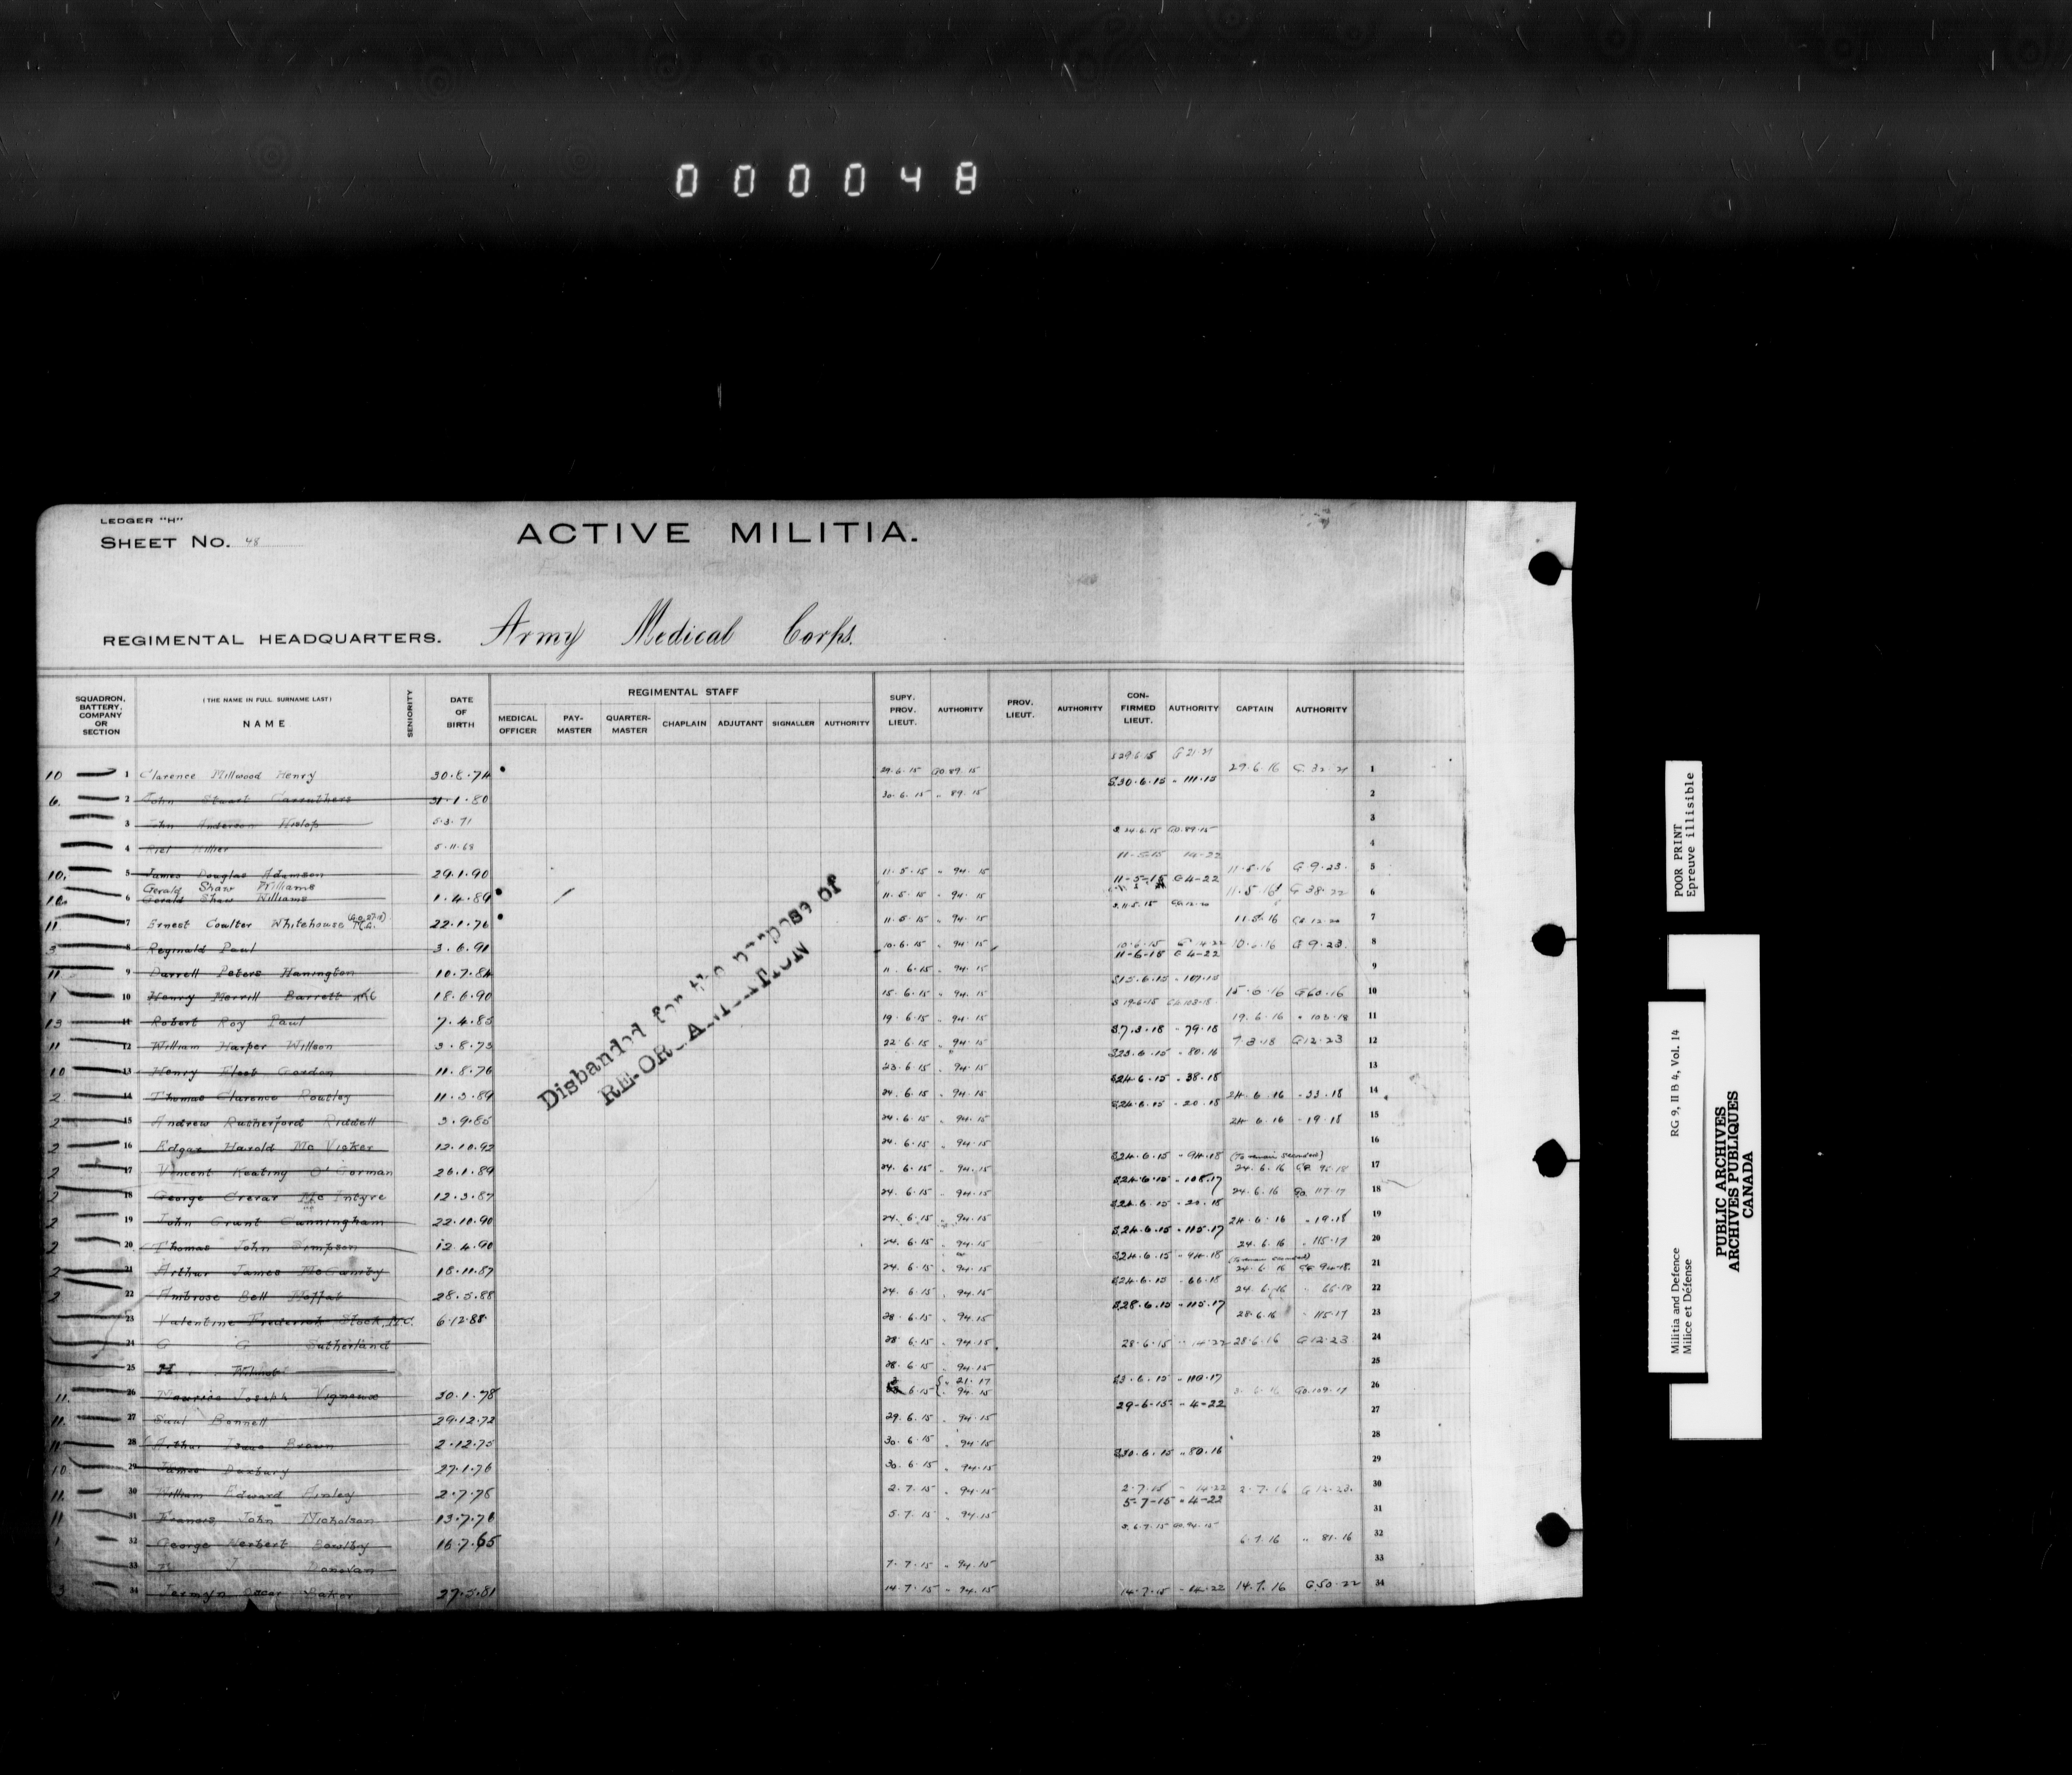 000048
LEDGER "H"
SHEET No. 48
ACTIVE MILITIA.
REGIMENTAL HEADQUARTERS. Army Medical Corps.
SQUADRON, BATTERY, COMPANY OR SECTION
(THE NAME IN FULL SURNAME LAST) NAME
SENIORITY
DATE OF BIRTH
REGIMENTAL STAFF
MEDICAL OFFICER PAY-MASTER QUARTER-MASTER CHAPLAIN ADJUTANT SIGNALLER AUTHORITY
SUPY. PROV. LIEUT. AUTHORITY PROV. LIEUT. AUTHORITY CON-FIRMED LIEUT. AUTHORITY CAPTAIN AUTHORITY
10 1 Clarence Millwood Henry 30.8.74 29.6.15 GO.89.15 S29.6.15 G 21.21 29.6.16 1
6. 2 John Stuart Carruthers 31.1.80 30.6.15 " 89.15 S.30.6.15 " 111.15 2
3 John Anderson Hislop 5.3.71 3
4 Hillier 5.11.68 S 24.6.15 GO.89.15 4
10. 5 James Douglas Adamson 29.1.90 11.5.15 " 94.15 11.5.15 14-22 11.5.16 G 9.23. 5
Gerald Shaw Williams
6 Gerald Shaw Williams 1.4.89 11.5.15 " 94.15 11-5-15 G 4-22 11.5.16 G 38.22 6
11 7 Ernest Coulter Whitehouse M.C. 22.1.76 11.5.15 " 94.15 S.11.5.15 11.5.16 7
3 8 Reginald Paul 3.6.91 10.6.15 " 94.15 10.6.15 G 14.22 10.6.16 G 9.23. 8
11 9 Darrell Peters Hanington 10.7.84 11.6.15 " 94.15 11-6-15 G 4-22 9
1 10 Henry Morrill Barrett 18.6.90 15.6.15 " 94.15 S15.6.15 " 107.15 15.6.16 G60.16 10
13 11 Robert Roy Paul 7.4.85 19.6.15 " 94.15 S 19.6.15 19.6.16 " 103.18 11
11 12 William Harper Willson 3.8.73 22.6.15 " 94.15 S7.3.18 " 79.18 7.3.18 G12.23 12
10 13 Henry Fleet Gordon 11.8.76 23.6.15 " 94.15 S23.6.15 " 80.16 13
2 14 Thomas Clarence Routley 11.3.89 24.6.15 " 94.15 S24.6.15 " 38.18 24.6.16 " 33.18 14
2 15 Andrew Rutherford Riddell 3.9.85 24.6.15 " 94.15 S24.6.15 " 20.18 24.6.16 " 19.18 15
2 16 Edgar Harold Mc Vicker 12.10.92 24.6.15 " 94.15 16
2 17 Vincent Keating O'Gorman 26.1.89 24.6.15 " 94.15 S24.6.15 " 94.18 (To remain seconded) 24.6.16 17
2 18 George Crerar Mc Intyre 12.3.87 24.6.15 " 94.15 S24.6.15 " 108.17 24.6.16 GO. 117.17 18
2 19 John Grant Cunningham 22.10.90 24.6.15 " 94.15 S24.6.15 " 20.18 24.6.16 " 19.18 19
2 20 Thomas John Simpson 12.4.90 24.6.15 " 94.15 S24.6.15 " 115.17 24.6.16 " 115.17 20
2 21 Arthur James McGanity 18.11.87 24.6.15 " 94.15 S24.6.15 " 94.18 (To remain seconded) 24.6.16 GO. 94.18. 21
2 22 Ambrose Bell Moffat 28.5.88 24.6.15 " 94.15 S24.6.15 " 66.18 24.6.16 " 66.18 22
23 Valentine Frederick Stock, M.C. 6.12.88 28.6.15 " 94.15 S28.6.15 " 115.17 28.6.16 " 115.17 23
24 G G Sutherland 28.6.15 " 94.15 28.6.15 " 14.22 28.6.16 G12.23 24
25 H. 28.6.15 " 94.15 25
11. 26 Maurice Joseph Vigneux 30.1.78 6.15 " 21.17 " 94.15 S3.6.15 " 110.17 GO.109.17 26
11. 27 Saul Bonnell 29.12.72 29.6.15 " 94.15 29-6-15 " 4-22 27
11 28 Arthur Isaac Brown 2.12.75 30.6.15 " 94.15 28
10 29 James Duxbury 27.1.76 30.6.15 " 94.15 S30.6.15 " 80.16 29
11. 30 William Edward Ainley 2.7.78 2.7.15 " 94.15 2.7.15 " 14.22 2.7.16 G 12.23. 30
11 31 Francis John Nicholson 13.7.76 5.7.15 " 94.15 5-7-15 " 4-22 31
1 32 George Herbert Bowlby 16.7.65 S.6.7.15 GO.94.15 6.7.16 " 81.16 32
33 J Donovan 7.7.15 " 94.15 33
3 34 Jermyn Oscar Baker 27.5.81 14.7.15 " 94.15 14.7.15 " 14-22 14.7.16 G50.22 34
Disbanded for the purpose of
RE-ORGANIZATION
POOR PRINT
Epreuve illisible
Militia and Defence RG 9, II B 4, Vol. 14
Milice et Défense
PUBLIC ARCHIVES
ARCHIVES PUBLIQUES
CANADA